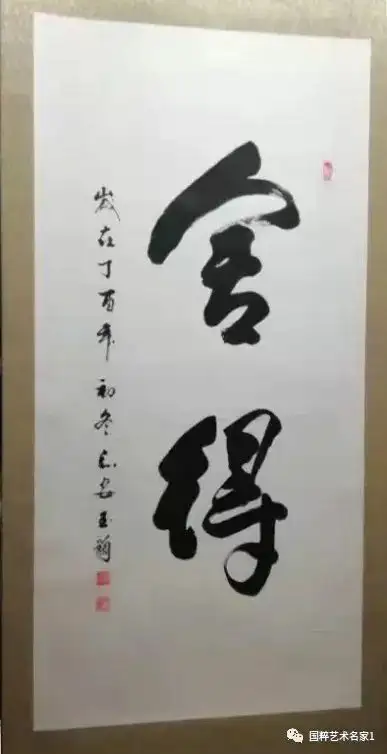 舍得
岁在丁酉年初冬 玉兰
国粹艺术名家1